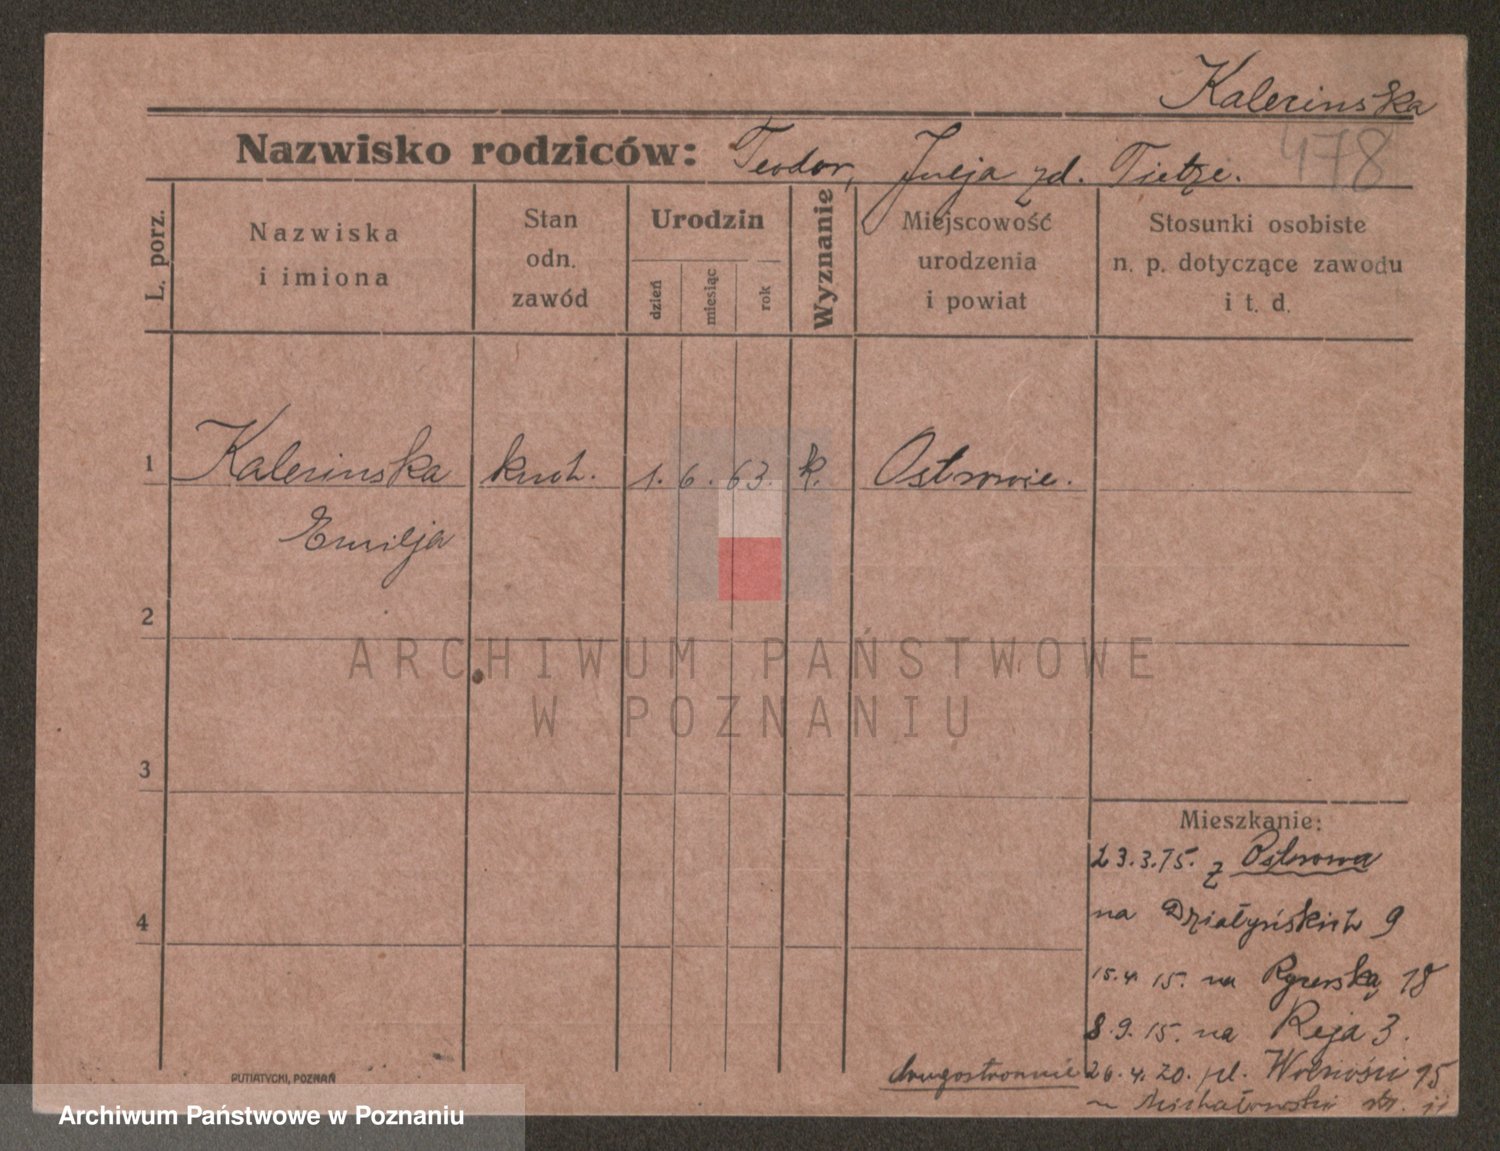 Kalerinska
478
Nazwisko rodziców: Teodor, Julja zd. Tietze.
L. porz.
Nazwiska
i imiona
Stan
odn.
zawód
Urodzin
dzień
miesiąc
rok
Wyznanie
Miejscowość
urodzenia
i powiat
Stosunki osobiste
n. p. dotyczące zawodu
i t. d.
1 Kalerinska kuch. 1. 6. 63. k. Ostrowie.
Emilja
2
ARCHIWUM PAŃSTWOWE
W POZNANIU
3
Mieszkanie:
23.3.15. z Ostrowa
na Działyńskich 9
4
15.4.15. na Rycerską 18
8.9.15. na Reja 3.
drugostronnie 26.4.20. pl. Wolności 15
PUTIATYCKI, POZNAŃ
Archiwum Państwowe w Poznaniu